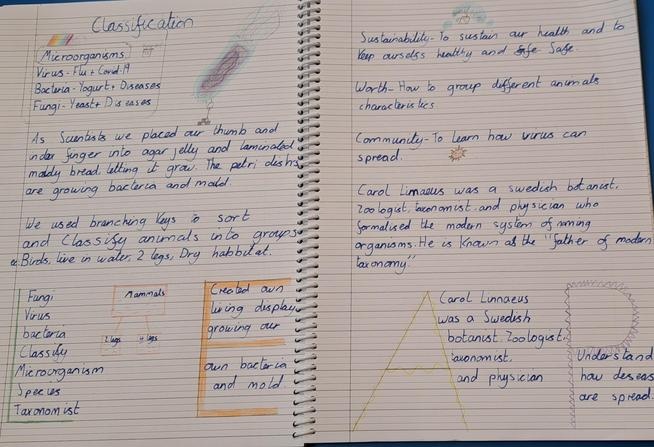 Classification
Microorganisms
Virus - Flu + Covid-19
Bacteria - Yogurt + Diseases
Fungi - Yeast + Diseases
As Scientists we placed our thumb and
index finger into agar jelly and laminated
moldy bread, letting it grow. The petri dishes
are growing bacteria and mold.
We used branching keys to sort
and Classify animals into groups
e. Birds, live in water, 2 legs, Dry habbitat.
Fungi
Virus
bacteria
Classify
Microorganism
Species
Taxonomist
Mammals
2 legs 4 legs
Created own
living display
growing our
own bacteria
and mold
Sustainability - To sustain our health and to
keep ourselves healthy and Safe.
Worth - How to group different animals
characteristics.
Community - To learn how virus can
spread.
Carol Linnaeus was a swedish botanist,
Zoologist, taxonomist and physician who
formalised the modern system of naming
organisms. He is Known as the "father of modern
taxonomy."
Carol Linnaeus
was a Swedish
botanist. Zoologist,
taxonomist.
and physician
Understand
how deseas
are spread.